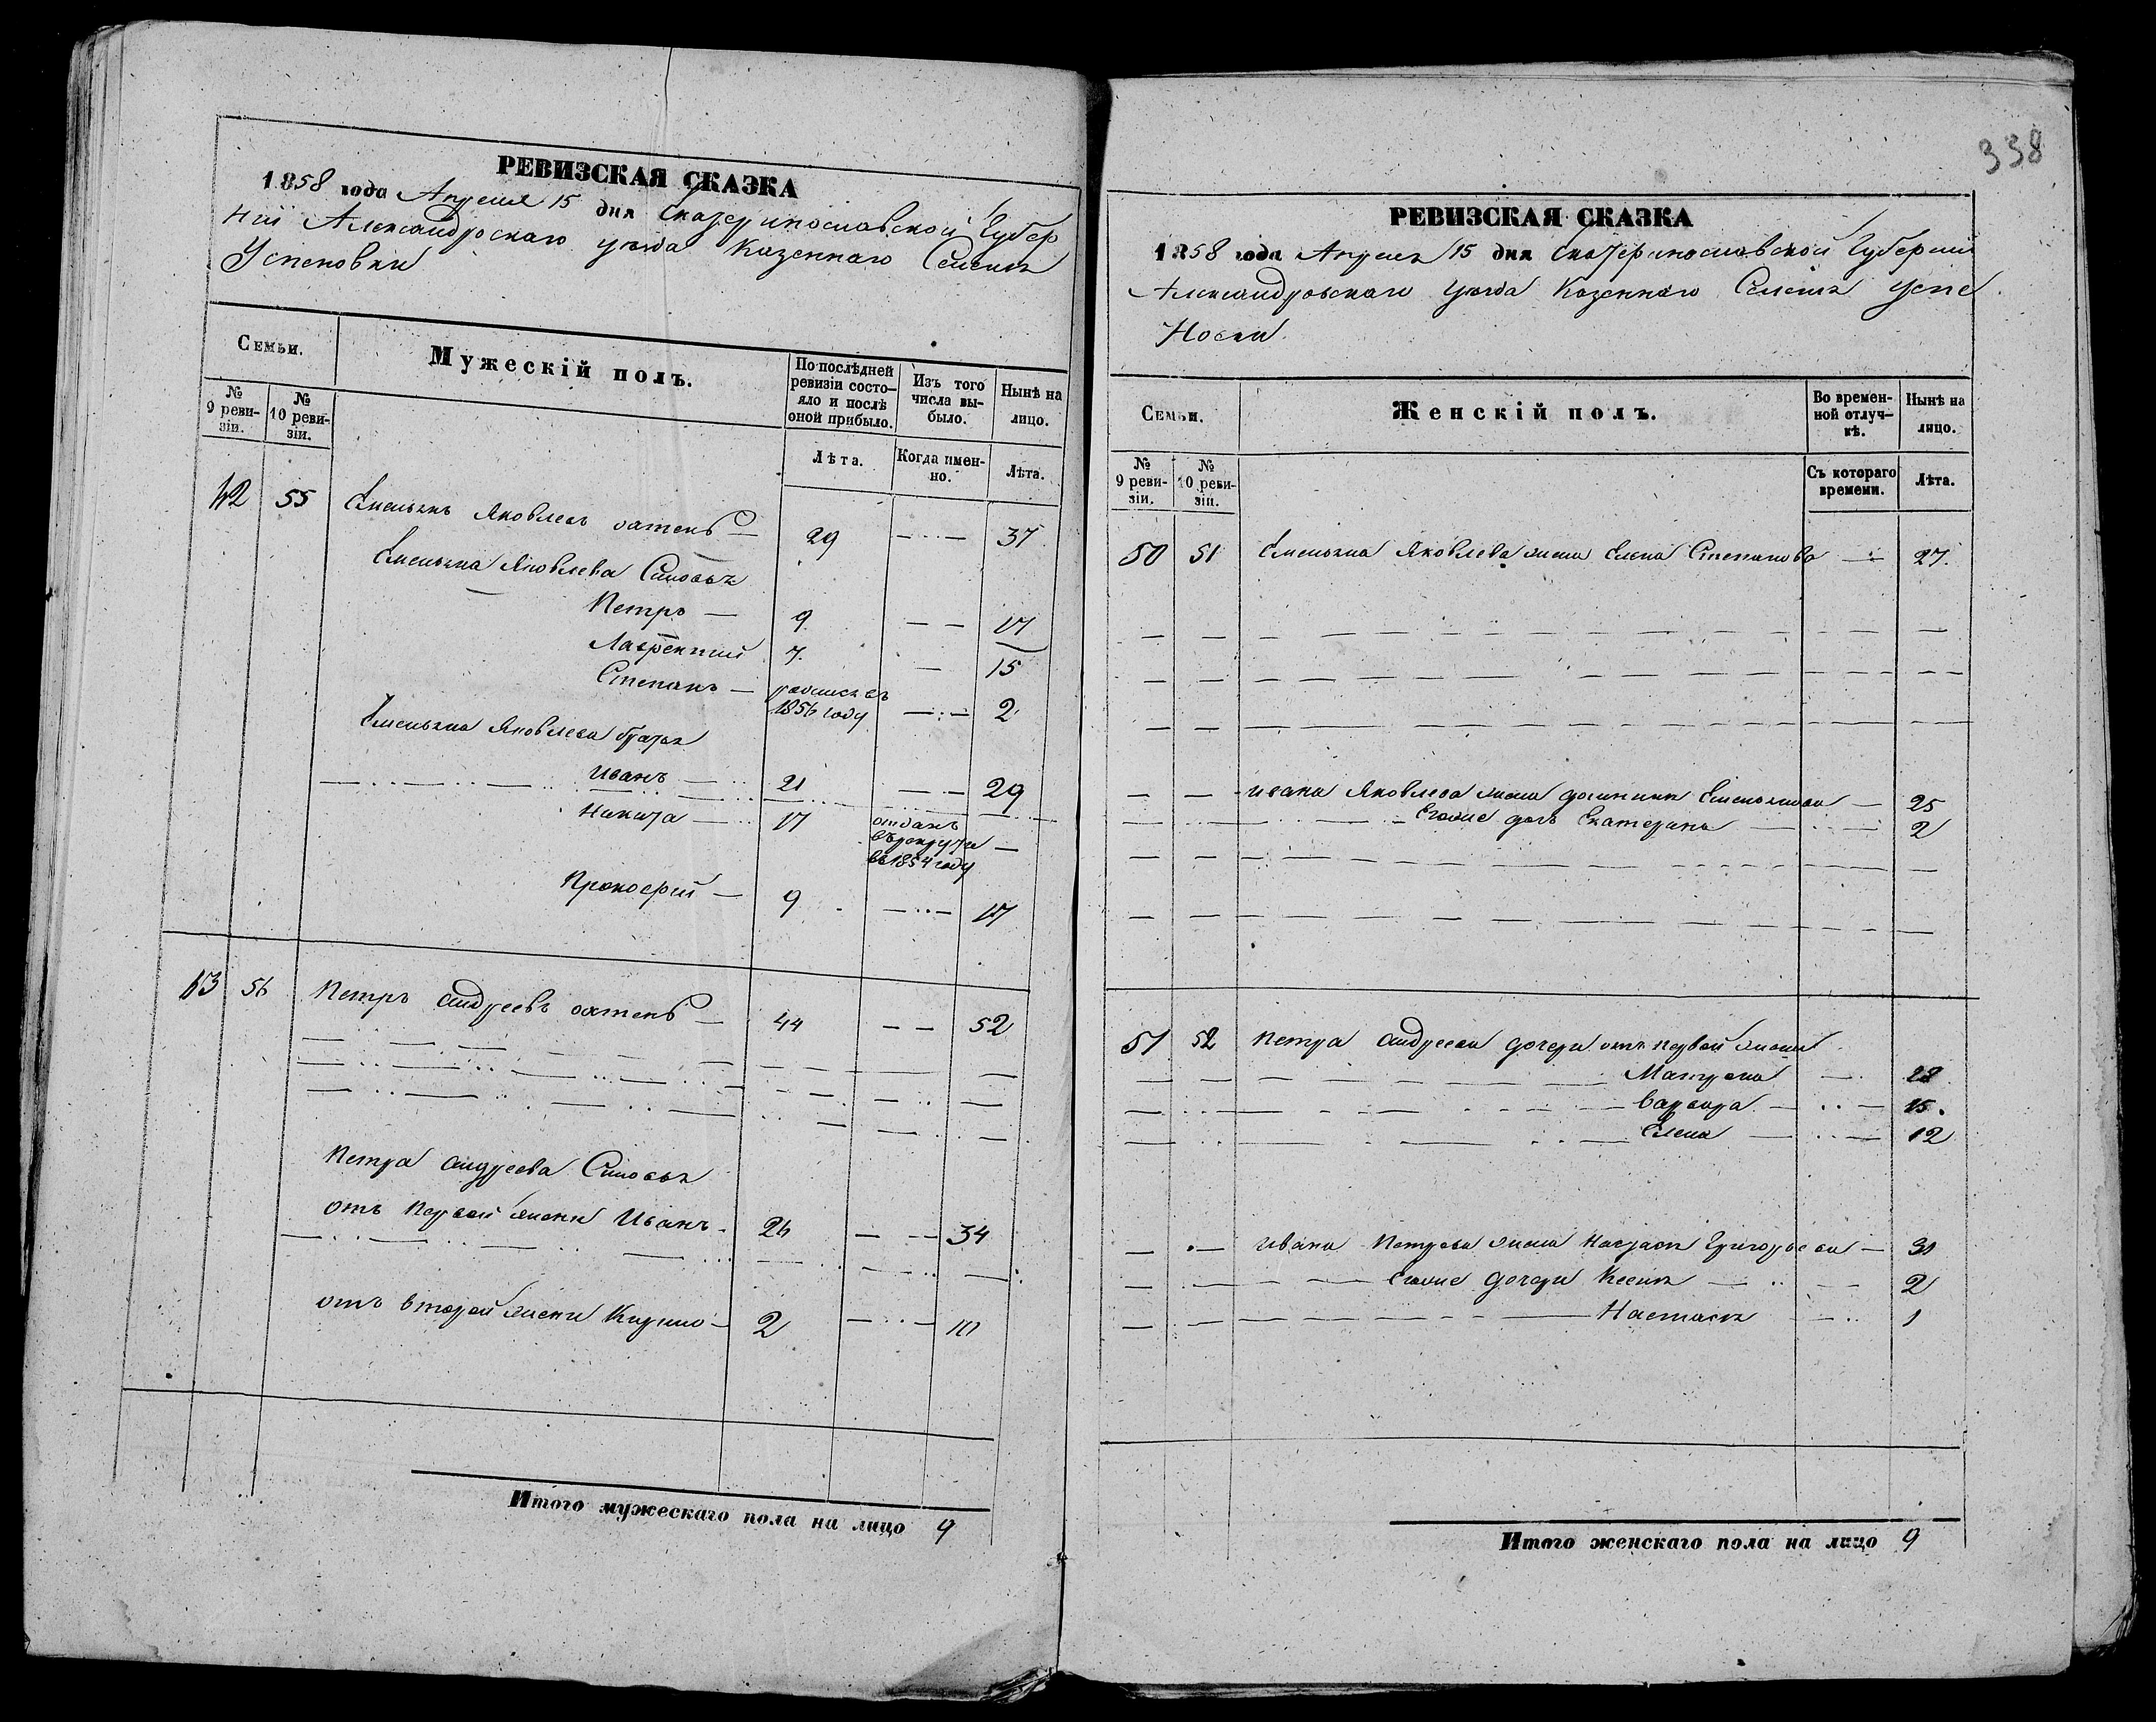 РЕВИЗСКАЯ СКАЗКА
1858 года Апреля 15 дня Екатеринославской Губер
ніи Александровскаго уезда Казеннаго Селенія
Успеновки
Семьи.
Мужескій полъ.
По послѣдней ревизіи состо-
яло и послѣ оной прибыло.
Изъ того числа вы-
было.
Нынѣ на лицо.
№ 9 реви-
зіи.
№ 10 реви-
зіи.
Лѣта.
Когда имен-
но.
Лѣта.
42 55 Емельянъ Яковлевъ 29 37
Емельяна Яковлева Сыновья
Петръ 9 17
Лаврентий 7. 15
Степанъ родился въ 1856 году 2
Емельяна Яковлева братья
Иванъ 21 29
Никита 17 отданъ въ рекруты въ 1854 году
Прокофий 9 17
43 56 Петръ Андреевъ 44 52
Петра Андреева Сыновья
отъ Первой жены Иванъ 26 34
отъ второй жены 2 10
Итого мужескаго пола на лицо 9
338
РЕВИЗСКАЯ СКАЗКА
1858 года Апреля 15 дня Екатеринославской Губернии
Александровскаго уезда Казеннаго Селенія Успе
Новки
Семьи.
Женскій полъ.
Во времен-
ной отлуч-
кѣ.
Нынѣ на лицо.
№ 9 реви-
зіи.
№ 10 реви-
зіи.
Съ котораго времени.
Лѣта.
50 51 Емельяна Яковлева жена Елена Степанова 27.
Ивана Яковлева жена Емельянова 25
Егоже дочь Екатерина 2
51 52 Петра Андреева дочери отъ первой жены
Матрена 28
Варвара 15.
Елена 12
Ивана Петрова жена Григорьева 31
Егоже дочери 2
Настасья 1
Итого женскаго пола на лицо 9